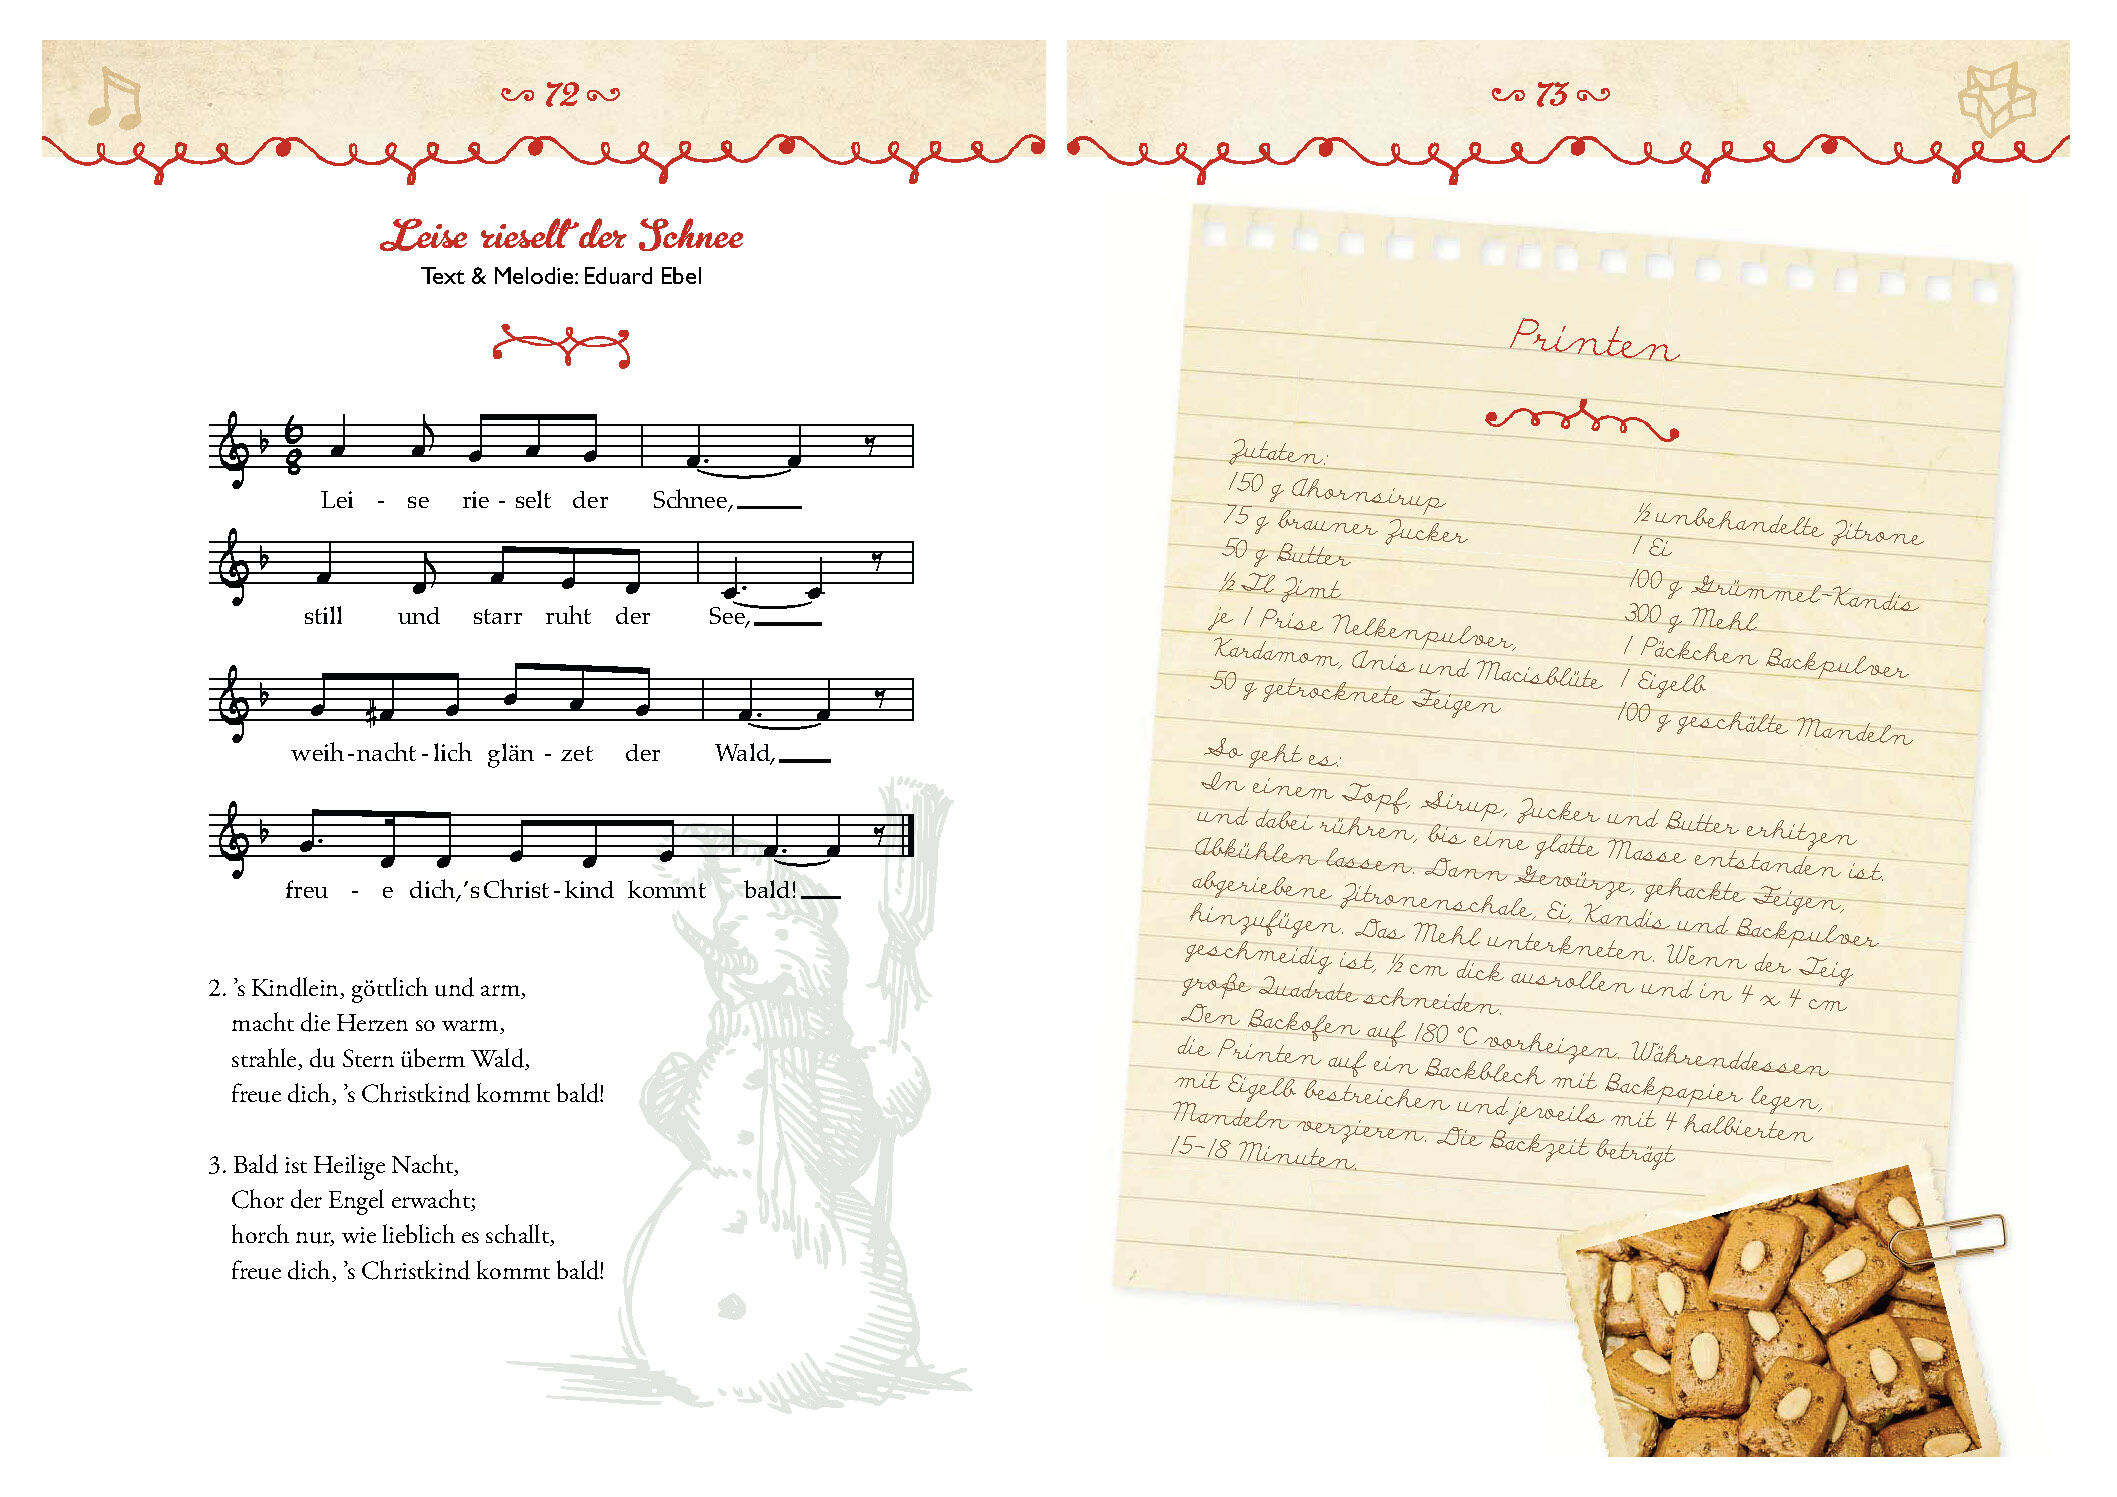 72
Leise rieselt der Schnee
Text & Melodie: Eduard Ebel
6
8
Lei - se rie - selt der Schnee,
still und starr ruht der See,
weih - nacht - lich glän - zet der Wald,
freu - e dich, ’s Christ - kind kommt bald!
2. ’s Kindlein, göttlich und arm,
macht die Herzen so warm,
strahle, du Stern überm Wald,
freue dich, ’s Christkind kommt bald!
3. Bald ist Heilige Nacht,
Chor der Engel erwacht;
horch nur, wie lieblich es schallt,
freue dich, ’s Christkind kommt bald!
73
Printen
Zutaten:
150 g Ahornsirup
75 g brauner Zucker
50 g Butter
½ Tl Zimt
je 1 Prise Nelkenpulver,
Kardamom, Anis und Macisblüte
50 g getrocknete Feigen
½ unbehandelte Zitrone
1 Ei
100 g Grümmel-Kandis
300 g Mehl
1 Päckchen Backpulver
1 Eigelb
100 g geschälte Mandeln
So geht es:
In einem Topf, Sirup, Zucker und Butter erhitzen
und dabei rühren, bis eine glatte Masse entstanden ist.
Abkühlen lassen. Dann Gewürze, gehackte Feigen,
abgeriebene Zitronenschale, Ei, Kandis und Backpulver
hinzufügen. Das Mehl unterkneten. Wenn der Teig
geschmeidig ist, ½ cm dick ausrollen und in 4 x 4 cm
große Quadrate schneiden.
Den Backofen auf 180 °C vorheizen. Währenddessen
die Printen auf ein Backblech mit Backpapier legen,
mit Eigelb bestreichen und jeweils mit 4 halbierten
Mandeln verzieren. Die Backzeit beträgt
15-18 Minuten.